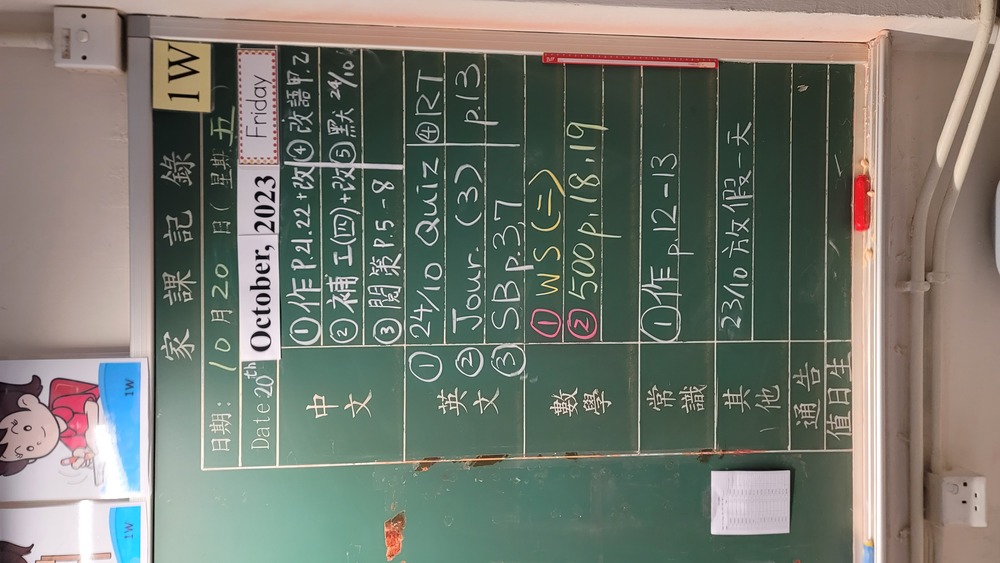 1W
家課記錄
日期: 10月20日(星期五)
Date 20th October, 2023 Friday
中文
①作 P.21.22+改 ④改語甲.乙
②補工(四)+改 ⑤默 24/10
③閱策 P.5-8
英文
① 24/10 Quiz ④RT p.13
② Jour. (3)
③ SB p.3,7
數學
① WS(二)
② 500 p.18,19
常識
①作 p.12-13
其他
23/10 放假一天
通告
值日生
1W
1W